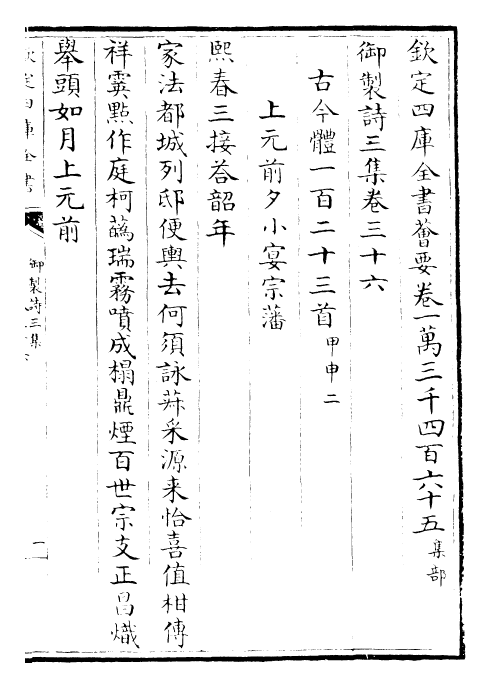 欽定四庫全書薈要卷一萬三千四百六十五集部
御製詩三集卷三十六
古今體一百二十三首甲申二
上元前夕小宴宗藩
熙春三接荅韶年
家法都城列邸便輿去何須詠莊采源来怡喜值柑傳
祥霙㸃作庭柯蘤瑞霧噴成榻鼎煙百世宗支正昌熾
舉頭如月上元前
欽定四庫全書
御製詩三集
一